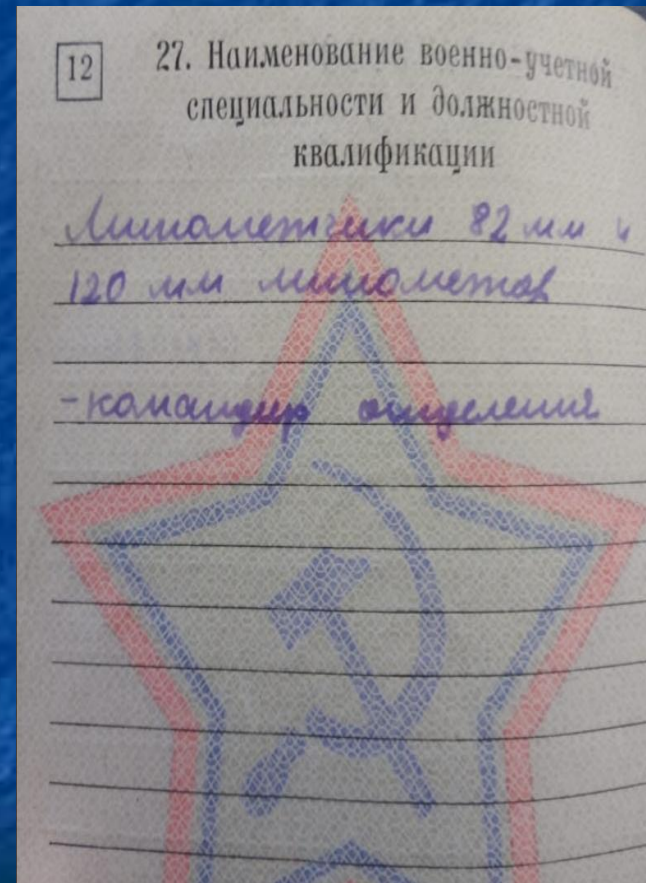 12
27. Наименование военно-учетной
специальности и должностной
квалификации
Минометчики 82 мм и
120 мм минометов
-командир отделения